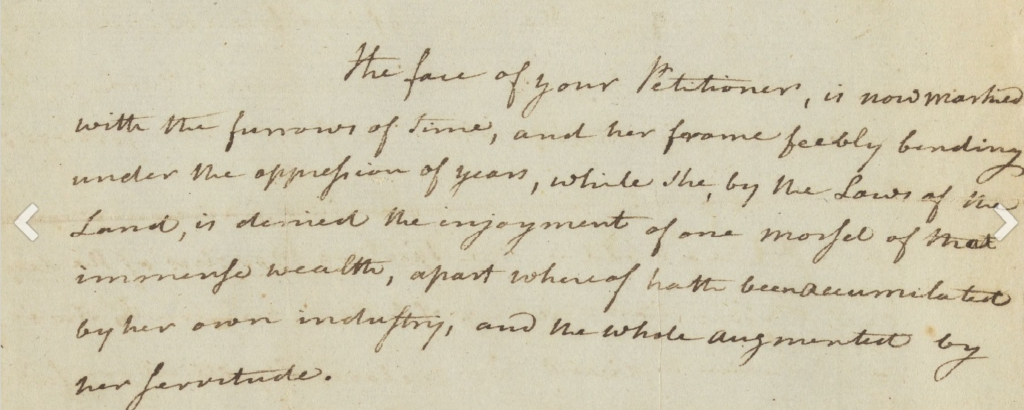 The face of your Petitioner, is now marked
with the furrows of time, and her frame feebly bending
under the oppression of years, while she, by the Laws of the
Land, is denied the enjoyment of one morsel of that
immense wealth, apart whereof hath been accumilated
by her own industry, and the whole augmented by
her servitude.